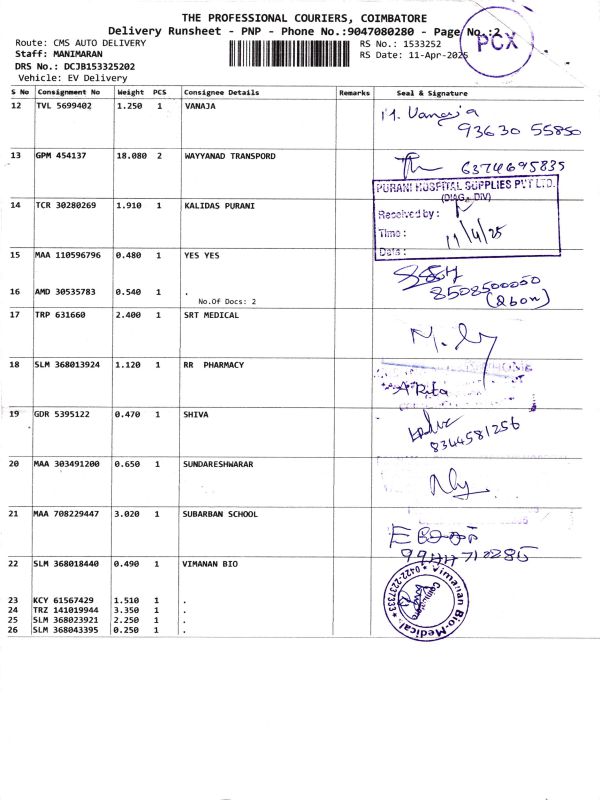 THE PROFESSIONAL COURIERS, COIMBATORE
Delivery Runsheet - PNP - Phone No.:9047080280 - Page No.:2
PCX
Route: CMS AUTO DELIVERY
Staff: MANIMARAN
DRS No.: DCJB153325202
Vehicle: EV Delivery
RS No.: 1533252
RS Date: 11-Apr-2025
S No Consignment No Weight PCS Consignee Details Remarks Seal & Signature
12 TVL 5699402 1.250 1 VANAJA
M. Vanaja
93630 55850
13 GPM 454137 18.080 2 WAYYANAD TRANSPORD
6374695835
PURANI HOSPITAL SUPPLIES PVT LTD.
(DIAG. DIV)
14 TCR 30280269 1.910 1 KALIDAS PURANI
Received by :
Time :
11/4/25
Date :
15 MAA 110596796 0.480 1 YES YES
8508500000
16 AMD 30535783 0.540 1 .
No.Of Docs: 2
17 TRP 631660 2.400 1 SRT MEDICAL
18 SLM 368013924 1.120 1 RR PHARMACY
19 GDR 5395122 0.470 1 SHIVA
8344581256
20 MAA 303491200 0.650 1 SUNDARESHWARAR
21 MAA 708229447 3.020 1 SUBARBAN SCHOOL
22 SLM 368018440 0.490 1 VIMANAN BIO
Vimanan Bio-Medical
0422-2237333
23 KCY 61567429 1.510 1 .
24 TRZ 141019944 3.350 1 .
25 SLM 368023921 2.250 1 .
26 SLM 368043395 0.250 1 .